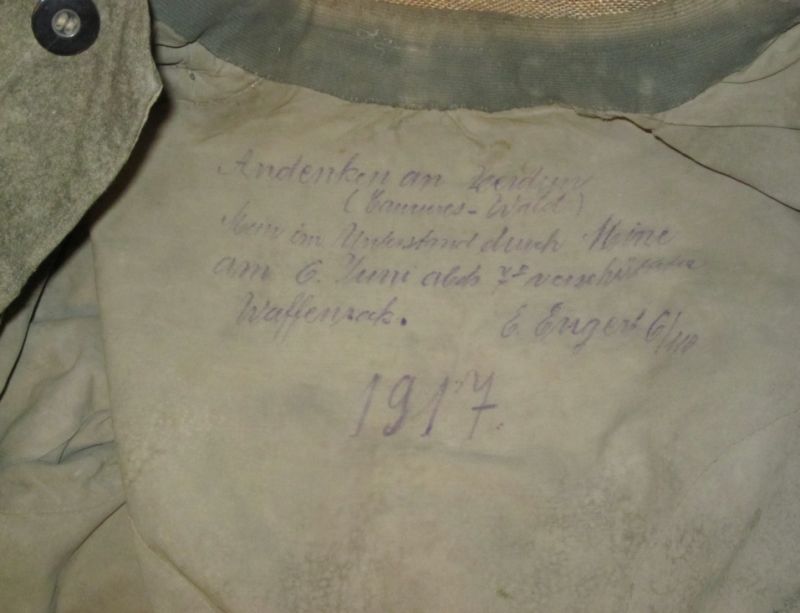 Andenken an Verdun
(Caurres-Wald)
Mein im Unterstand durch Mine
am 6. Juni abds 7½ verschütteter
Waffenrok. E. Engert 6/118
1917.